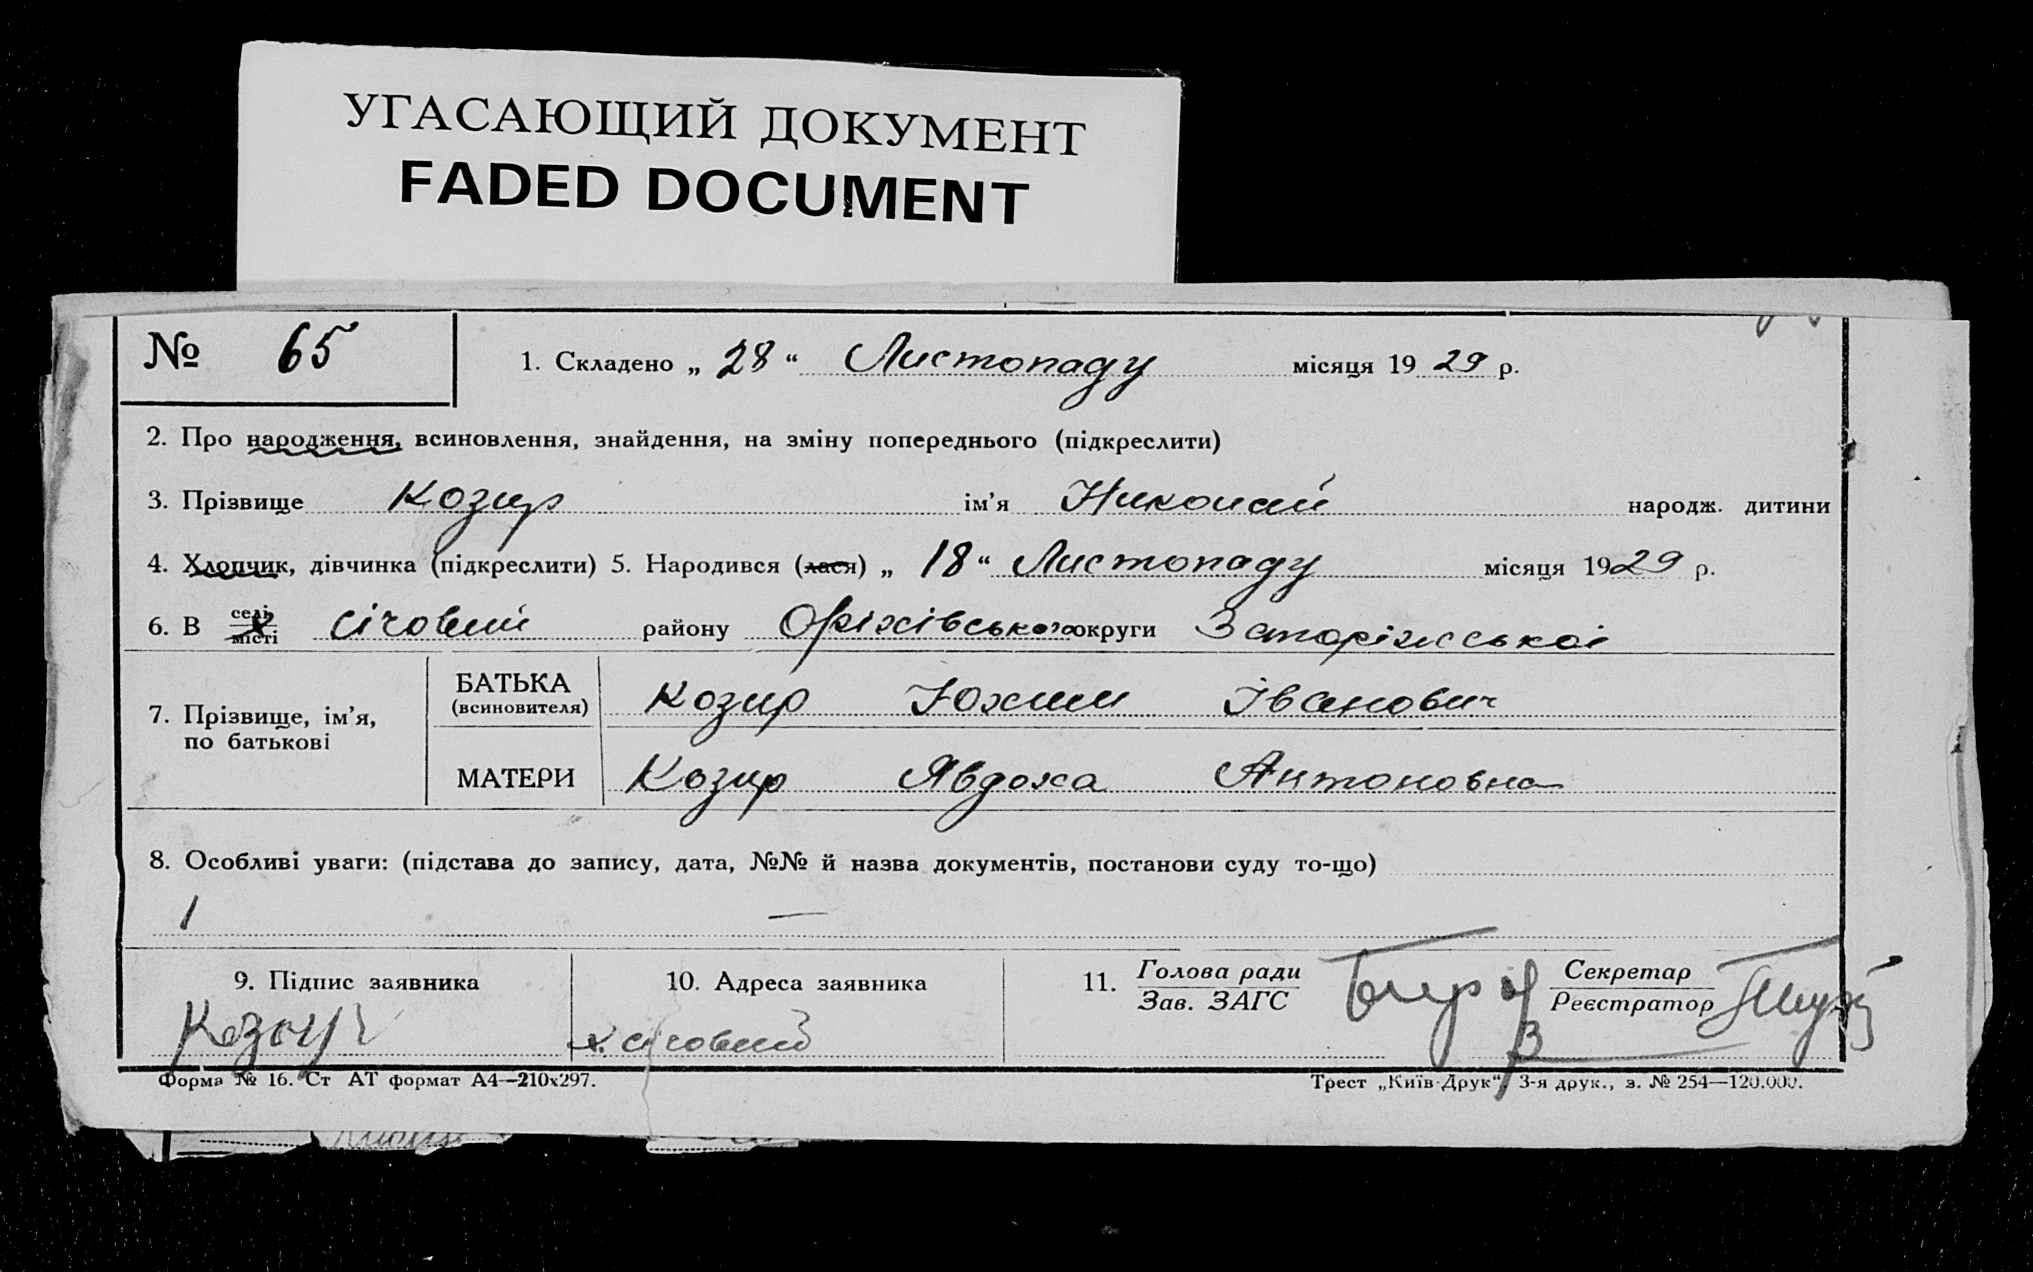 УГАСАЮЩИЙ ДОКУМЕНТ
FADED DOCUMENT
№ 65
1. Складено „ 28 “ Листопаду місяця 19 29 р.
2. Про народження, всиновлення, знайдення, на зміну попереднього (підкреслити)
3. Прізвище Козир ім’я Николай народж. дитини
4. Хлопчик, дівчинка (підкреслити) 5. Народився (лася) „ 18 “ Листопаду місяця 1929 р.
6. В селі місті Січовий району Оріхівського округи Запоріжської
7. Прізвище, ім’я, по батькові
БАТЬКА (всиновителя) Козир Юхим Іванович
МАТЕРИ Козир Явдоха Антоновна
8. Особливі уваги: (підстава до запису, дата, №№ й назва документів, постанови суду то-що)
1 —
9. Підпис заявника 10. Адреса заявника 11. Голова ради Зав. ЗАГС Секретар Реєстратор
Козир х. січовий
Форма № 16. Ст АТ формат А4—210х297. Трест „Київ-Друк“, 3-я друк., з. № 254—120.000.